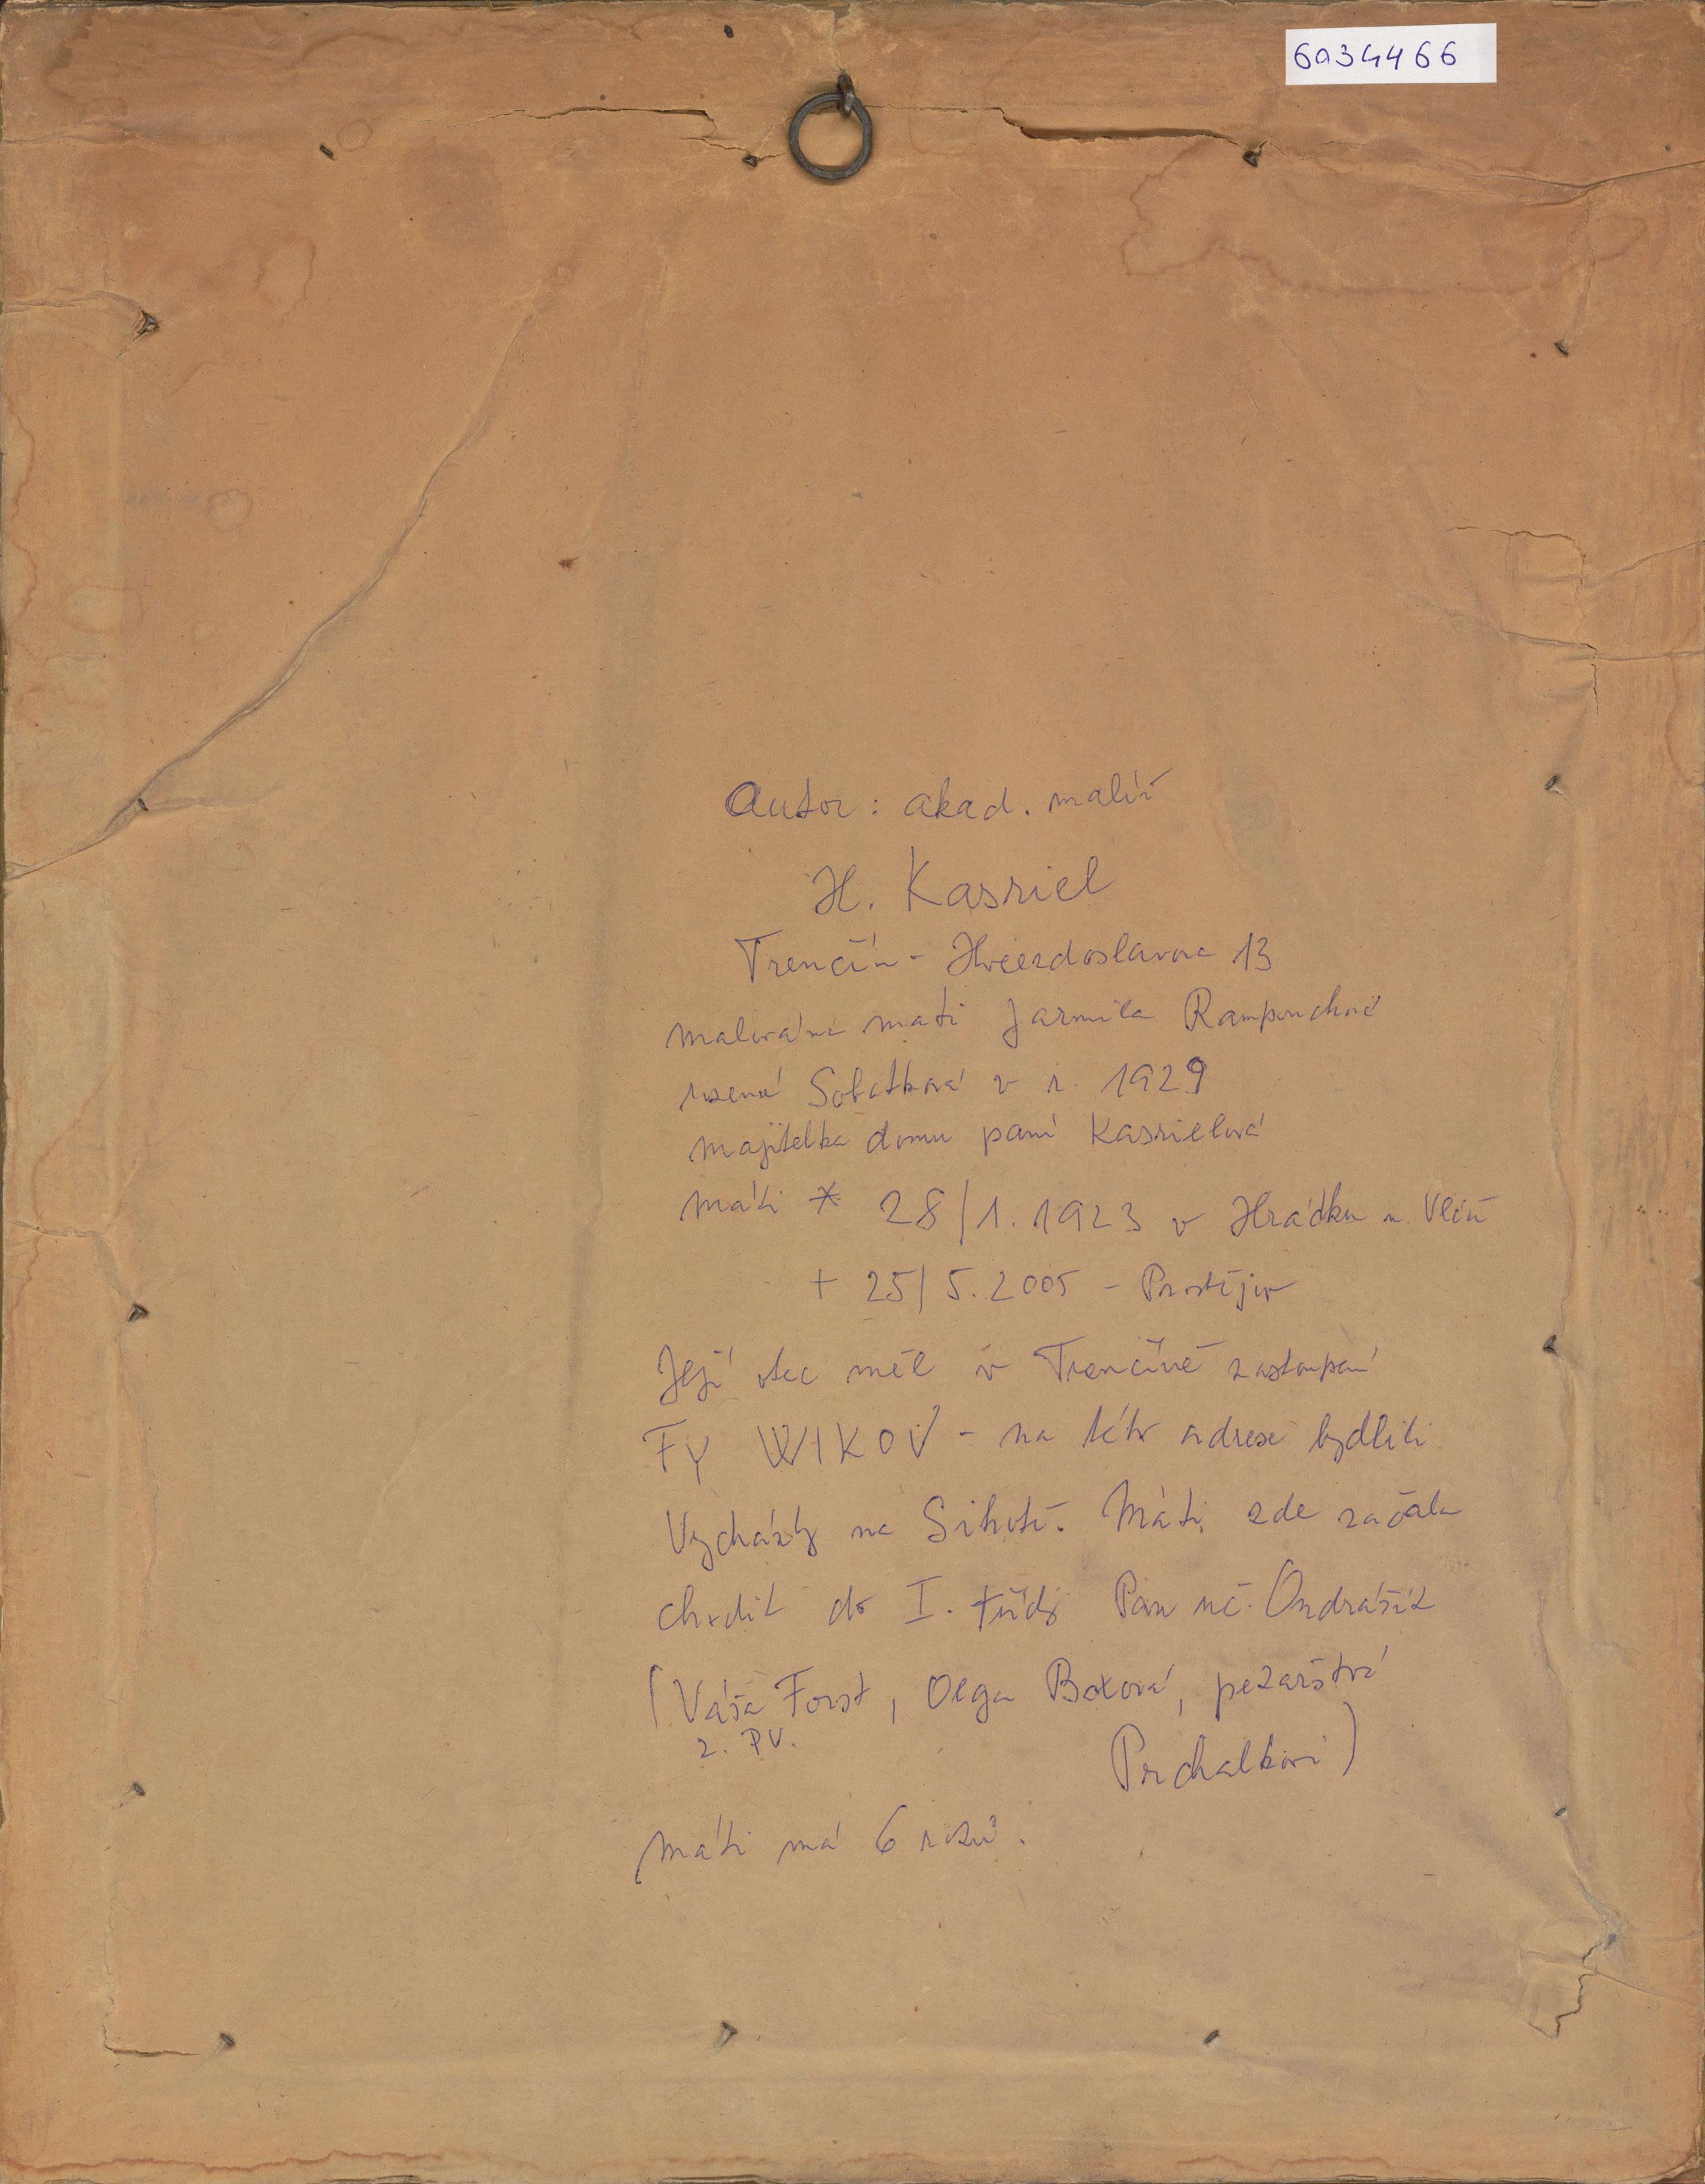 6034466
Autor: akad. malíř
H. Kasriel
Trenčín - Hviezdoslavova 13
malována máti Jarmila
rozená Sobotková v r. 1929
majitelka domu paní Kasrielová
máti * 28/1. 1923 v Hrádku n. Vlár
+ 25/5. 2005 - Prostějov
Její otec měl v Trenčíně zastoupení
FY WIKOV - na této adrese bydlili
Vycházky na Sihoti. Máti zde začala
chodit do I. třídy Pan uč. Ondrášik
(Váša Forst, Olga Boxová, pekařství
z. PV.
Prchalkovi)
máti má 6 roků.